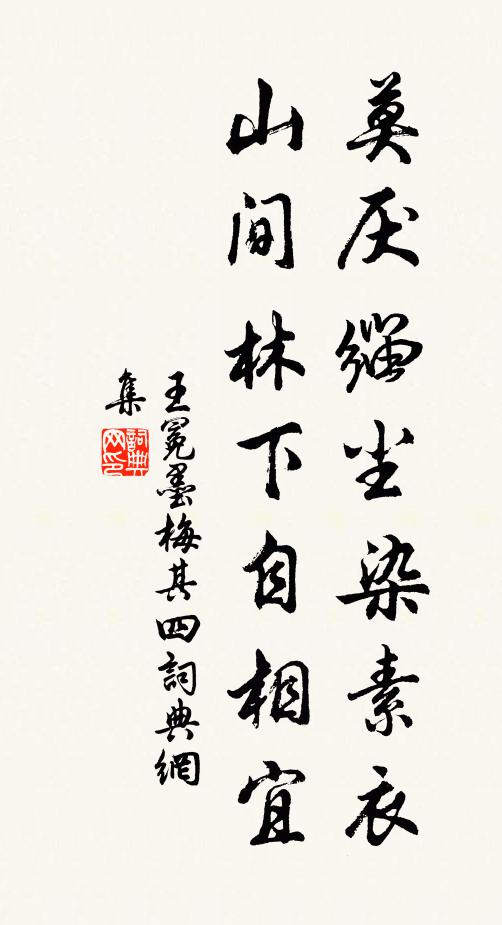 莫厌缁尘染素衣
山间林下自相宜
王冕墨梅其四詞典網
集
詞典
网印